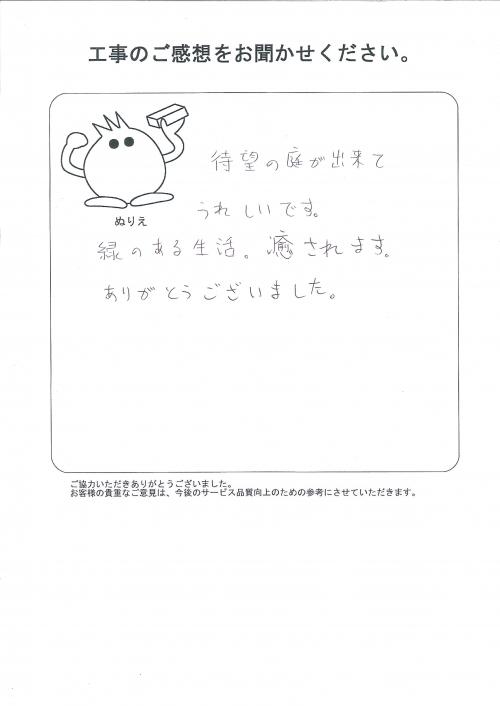 工事のご感想をお聞かせください。
待望の庭が出来て
うれしいです。
ぬりえ
緑のある生活。癒されます。
ありがとうございました。
ご協力いただきありがとうございました。
お客様の貴重なご意見は、今後のサービス品質向上のための参考にさせていただきます。